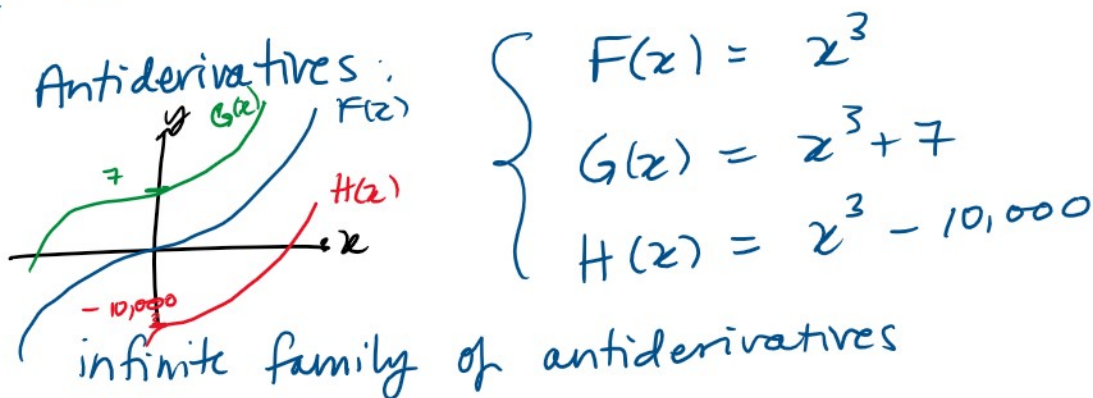 Antiderivatives:
y
G(x)
F(x)
7
H(x)
x
- 10,000
F(x) = x³
G(x) = x³ + 7
H(x) = x³ - 10,000
infinite family of antiderivatives